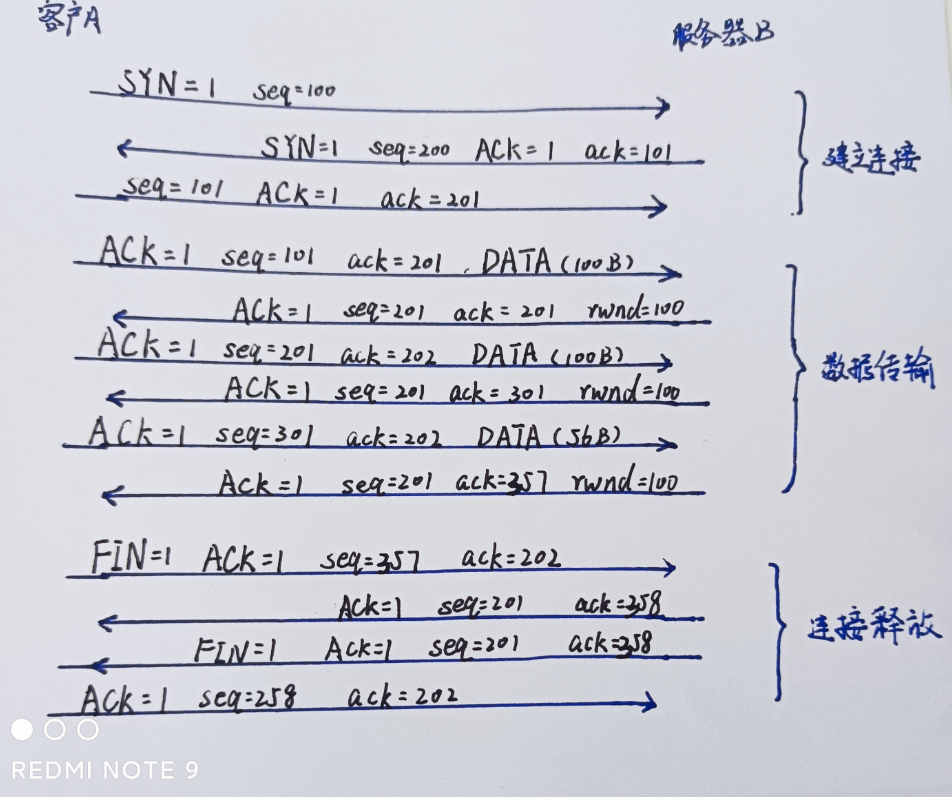 客户A
服务器B
SYN=1 seq=100
SYN=1 seq=200 ACK=1 ack=101
建立连接
seq=101 ACK=1 ack=201
ACK=1 seq=101 ack=201 . DATA (100B)
ACK=1 seq=201 ack=201 rwnd=100
ACK=1 seq=201 ack=202 DATA (100B)
数据传输
ACK=1 seq=201 ack=301 rwnd=100
ACK=1 seq=301 ack=202 DATA (56B)
ACK=1 seq=201 ack=357 rwnd=100
FIN=1 ACK=1 seq=357 ack=202
ACK=1 seq=201 ack=358
连接释放
FIN=1 ACK=1 seq=201 ack=358
ACK=1 seq=258 ack=202
REDMI NOTE 9